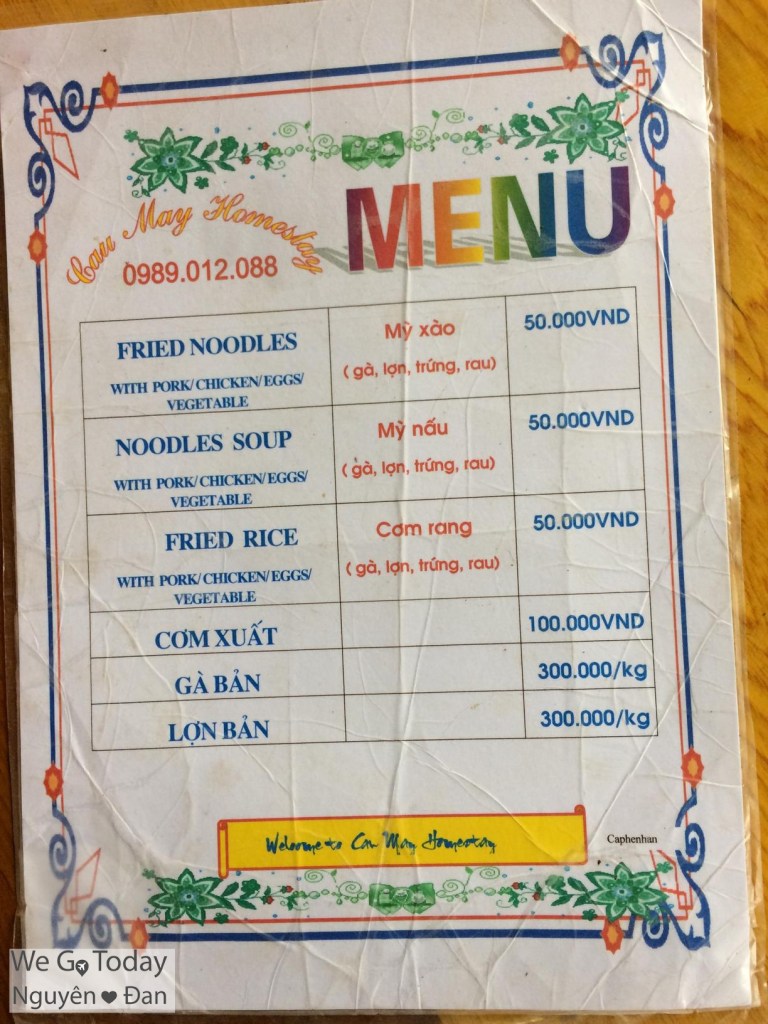 Cau May Homestay
0989.012.088
MENU
FRIED NOODLES
WITH PORK/CHICKEN/EGGS/
VEGETABLE
Mỳ xào
(gà, lợn, trứng, rau)
50.000VND
NOODLES SOUP
WITH PORK/CHICKEN/EGGS/
VEGETABLE
Mỳ nấu
(gà, lợn, trứng, rau)
50.000VND
FRIED RICE
WITH PORK/CHICKEN/EGGS/
VEGETABLE
Cơm rang
(gà, lợn, trứng, rau)
50.000VND
CƠM XUẤT
100.000VND
GÀ BẢN
300.000/kg
LỢN BẢN
300.000/kg
Welcome to Cau May Homestay
Caphenhan
We Go Today
Nguyên ❤ Đan